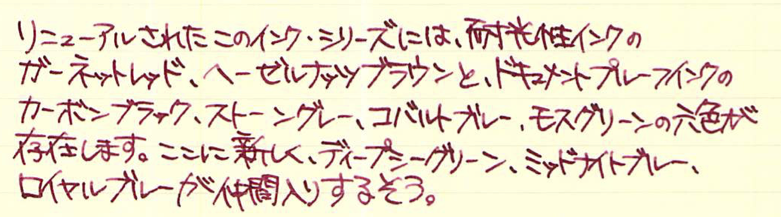 リニューアルされたこのインク・シリーズには、耐光性インクの
ガーネットレッド、ヘーゼルナッツブラウンと、ドキュメントプルーフインクの
カーボンブラック、ストーングレー、コバルトブルー、モスグリーンの六色が
存在します。ここに新しく、ディープシーグリーン、ミッドナイトブルー、
ロイヤルブルーが仲間入りするそう。